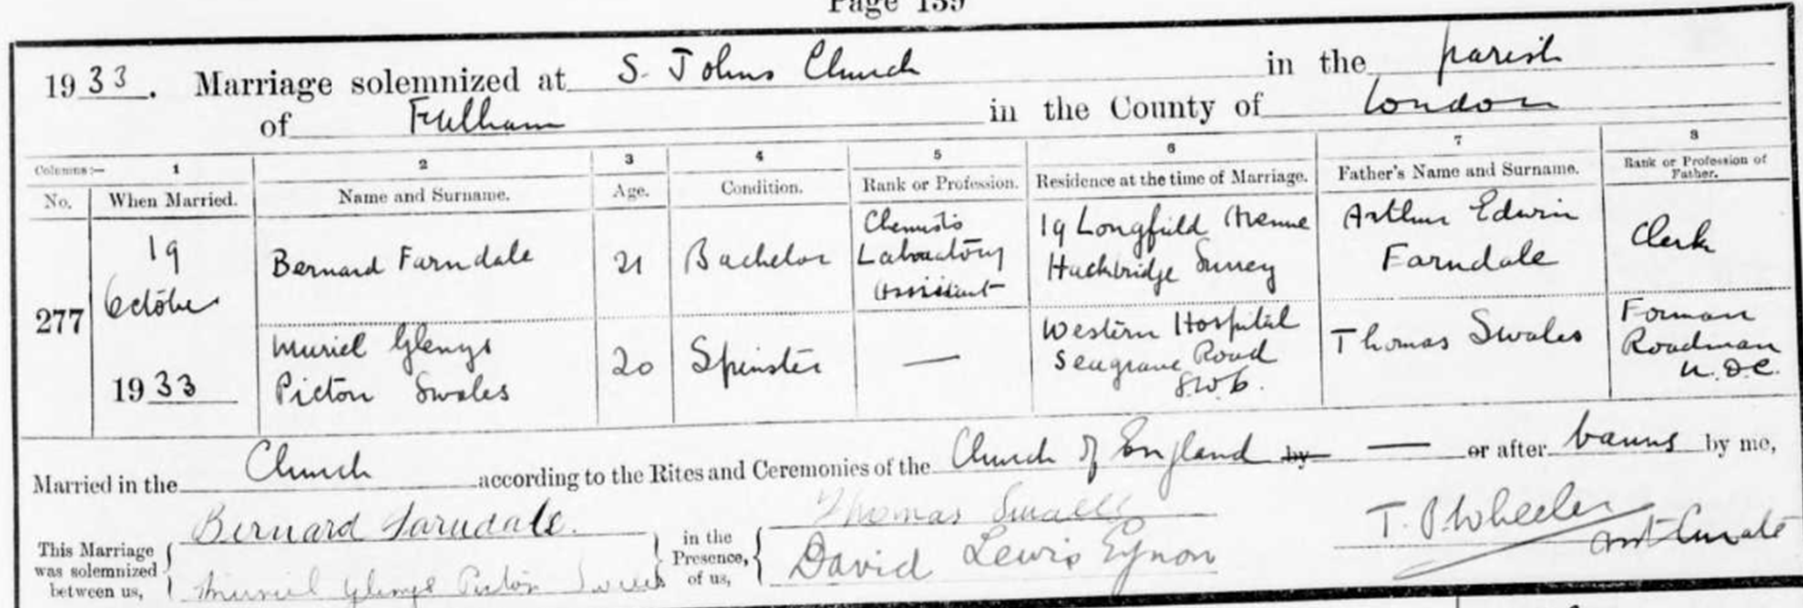 Page 139
1933. Marriage solemnized at S. Johns Church in the parish
of Fulham in the County of London
Columns:— 1 2 3 4 5 6 7 8
No. When Married. Name and Surname. Age. Condition. Rank or Profession. Residence at the time of Marriage. Father's Name and Surname. Rank or Profession of Father.
277 19 October 1933 Bernard Farndale 21 Bachelor Chemists Laboratory Assistant 19 Longfield Avenue Hackbridge Surrey Arthur Edwin Farndale Clerk
Muriel Glenys Picton Swales 20 Spinster — Western Hospital Seagrave Road S.W.6. Thomas Swales Forman Roadman U.D.C.
Married in the Church according to the Rites and Ceremonies of the Church of England by — or after banns by me,
This Marriage was solemnized between us, Bernard Farndale. in the Presence, of us, Thomas Swales T. P. Wheeler
Muriel Glenys Picton Swales David Lewis Eynon Asst Curate